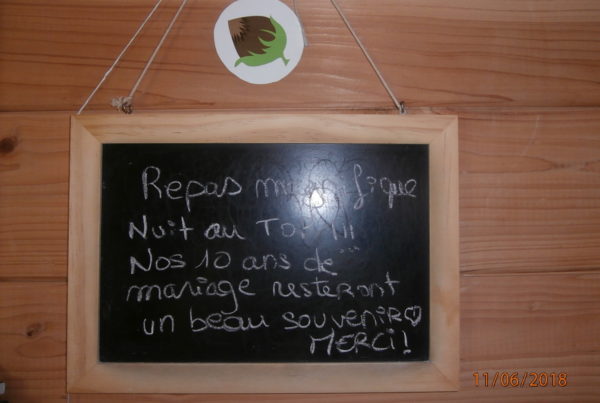 Repas magnifique
Nuit au Top !!!
Nos 10 ans de
mariage resteront
un beau souvenir♡
MERCI!
11/06/2018